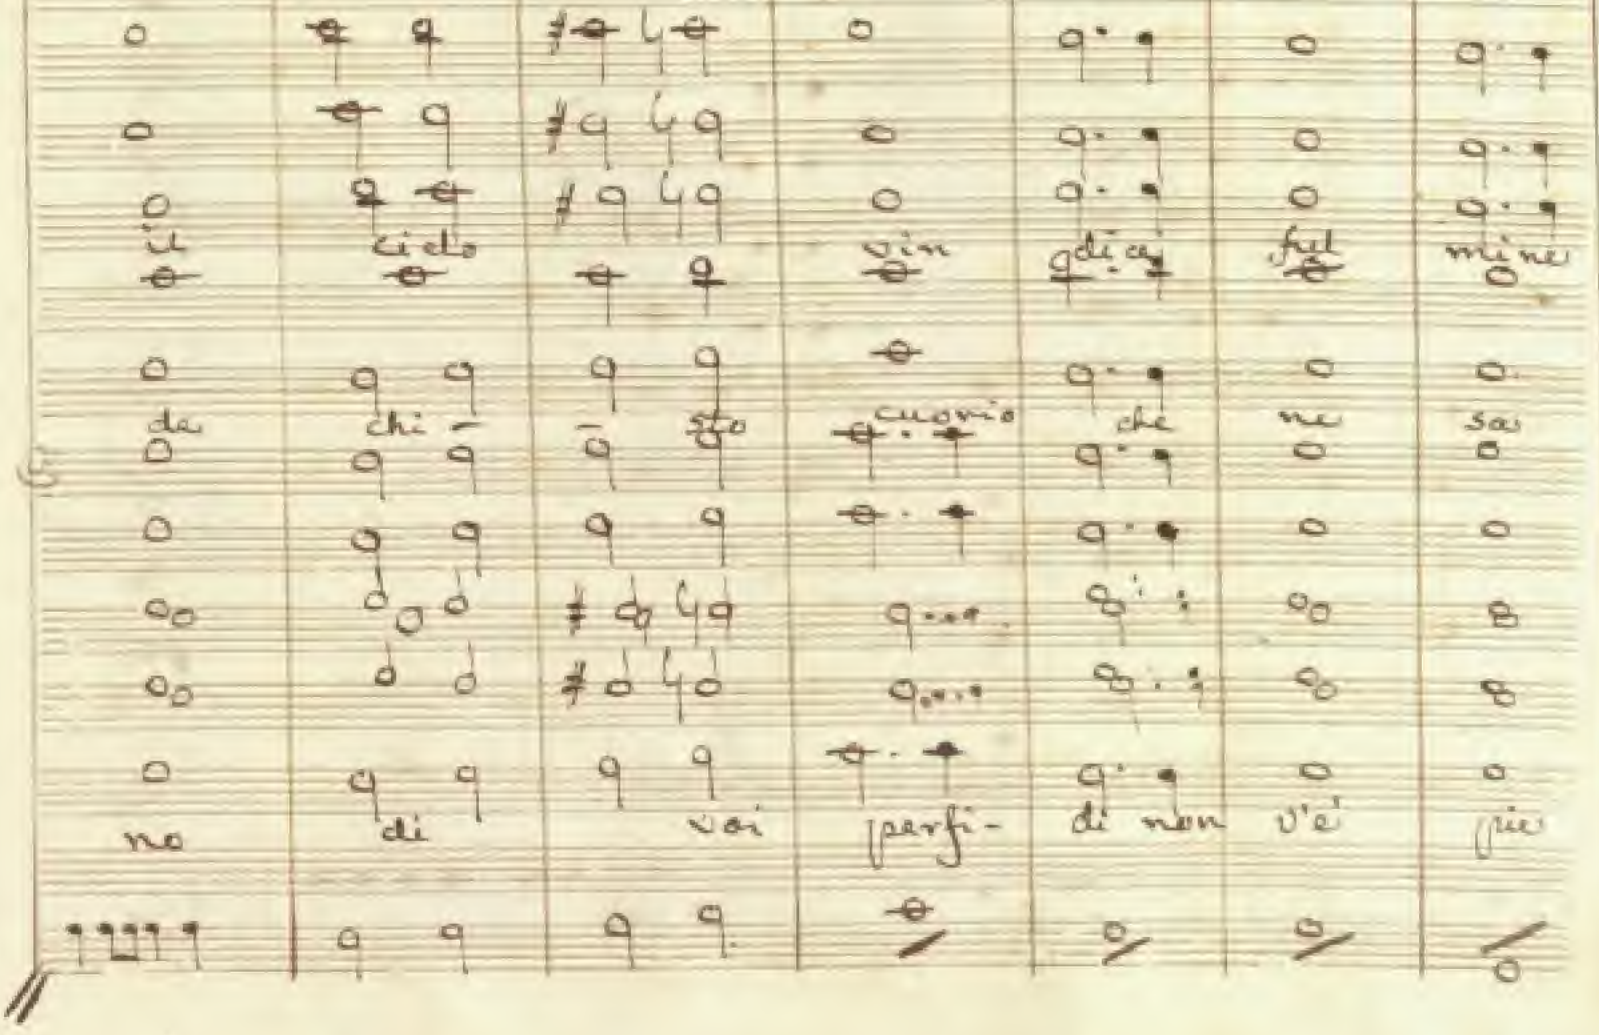 il cielo vin dice ful mine
de chi - - sto cuorio che ne sa
no di voi perfi- di non v'è più